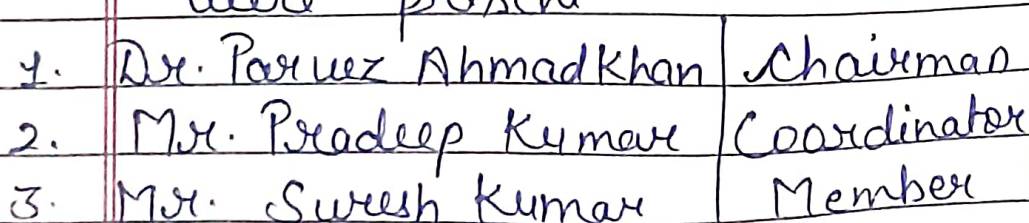 1. Dr. Parvez Ahmad Khan Chairman
2. Mr. Pradeep Kumar Coordinator
3. Mr. Suresh Kumar Member